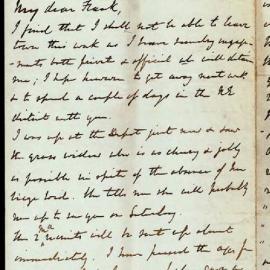 My dear Frank,
I find that I shall not be able to leave
town this week as I have several engage-
ments both private & official wh will detain
me; I hope however to get away next week
& to spend a couple of days in the N.E
district with you.
I was up at the Depot just now & saw
the grass widow who is as cheery & jolly
as possible in spite of the absence of her
liege lord. She tells me she will probably
run up to see you on Saturday.
The 2 recruits will be sent up about
immediately. I have passed the age for